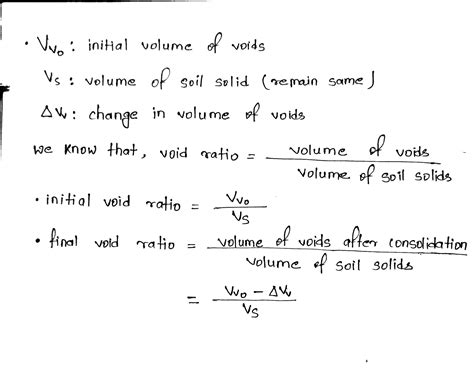 • Vv₀ : initial volume of voids
Vs : volume of soil solid (remain same)
ΔVv : change in volume of voids
we know that, void ratio = volume of voids / volume of soil solids
• initial void ratio = Vv₀ / Vs
• final void ratio = volume of voids after consolidation / volume of soil solids
= Vv₀ - ΔVv / Vs